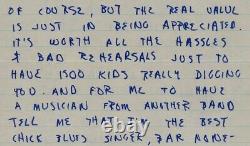 OF COURSE, BUT THE REAL VALUE
IS JUST IN BEING APPRECIATED.
IT'S WORTH ALL THE HASSLES
& BAD REHEARSALS JUST TO
HAVE 1500 KIDS REALLY DIGGING
YOU. AND FOR ME TO HAVE
A MUSICIAN FROM ANOTHER BAND
TELL ME THAT I'M THE BEST
CHICK BLUES SINGER, BAR NONE-